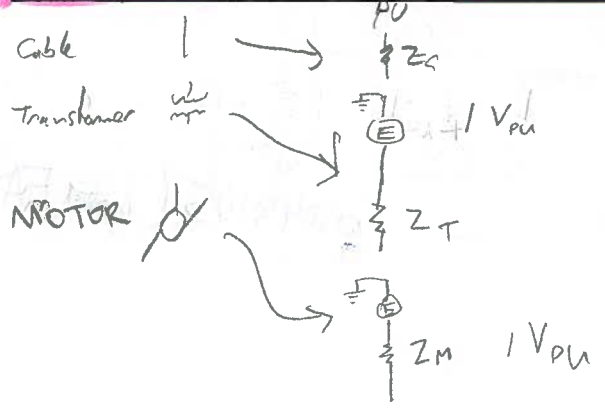 PU
Cable
Zc
Transformer
E
1 VPU
ZT
MOTOR
E
ZM 1 VPU